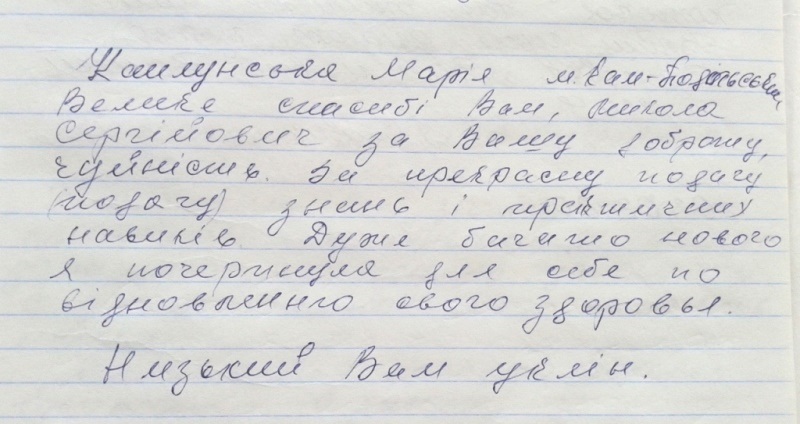 Марія м. Кам-Подільський
Велике спасибі Вам, Микола
Сергійович за Вашу доброту,
чуйність. За прекрасну подачу
(подачу) знань і практичних
навиків. Дуже багато нового
я почерпнула для себе по
відновленню свого здоровья.
Низький Вам уклін.